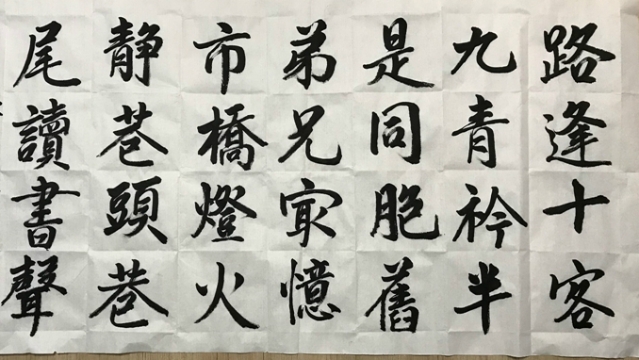 路逢十客
九青衿半
是同胞舊
弟兄㝡憶
市橋燈火
静巷頭巷
尾讀書聲